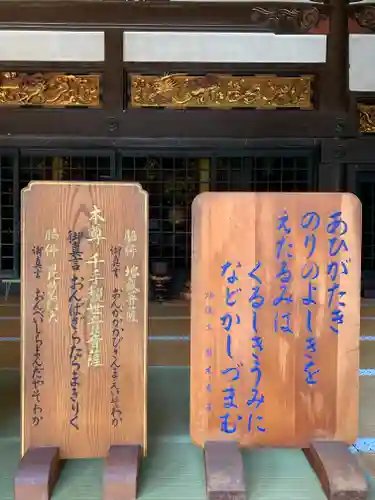 あひがたき
のりのよしきを
えたるみは
くるしきうみに
などかしづまむ
脇侍 地蔵菩薩
御真言 おんかかかびさんまえいそわか
本尊 千手観世音菩薩
御真言 おんばざらだるまきりく
脇侍 毘沙門天
御真言 おんべいしらまんだやそわか